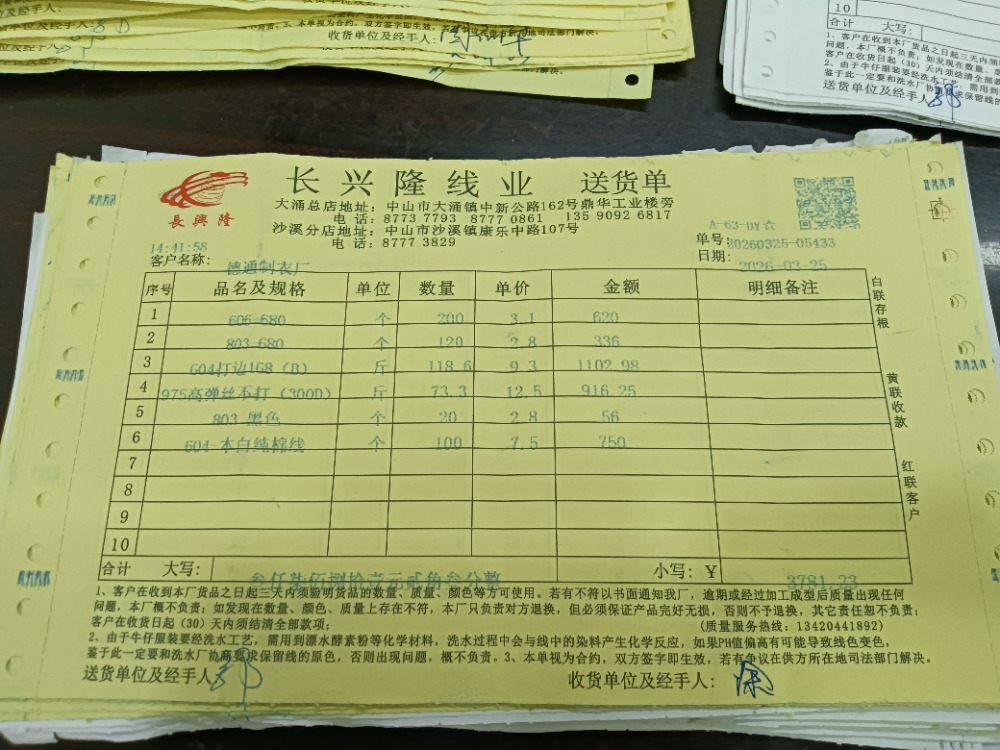 收货单位及经手人:
10
合计 大写:
送货单位及经手人
長興隆
长兴隆线业 送货单
大涌总店地址: 中山市大涌镇中新公路162号鼎华工业楼旁
电话: 8773 7793 8777 0861 135 9092 6817
沙溪分店地址: 中山市沙溪镇康乐中路107号
电话: 8777 3829
A-63-DY☆
单号: 20260325-05433
日期: 2026-03-25
14:41:58
客户名称: 德通制衣厂
序号 品名及规格 单位 数量 单价 金额 明细备注
1 606-680 个 200 3.1 620
2 803-680 个 120 2.8 336
3 604打边168 (B) 斤 118.6 9.3 1102.98
4 975高弹丝不打 (300D) 斤 73.3 12.5 916.25
5 803 黑色 个 20 2.8 56
6 604-本白纯棉线 个 100 7.5 750
7
8
9
10
合计 大写: 叁仟柒佰捌拾壹元贰角叁分整 小写: ¥ 3781.23
白联存根
黄联收款
红联客户
1、客户在收到本厂货品之日起三天内须验明货品的数量、质量、颜色等方可使用。若有不符以书面通知我厂, 逾期或经过加工成型后质量出现任何
问题, 本厂概不负责: 如发现在数量、颜色、质量上存在不符, 本厂只负责对方退换, 但必须保证产品完好无损, 否则不予退换, 其它责任恕不负责:
客户在收货日起 (30) 天内须结清全部款项; (质量服务热线: 13420441892)
2、由于牛仔服装要经洗水工艺, 需用到漂水酵素粉等化学材料, 洗水过程中会与线中的染料产生化学反应, 如果PH值偏高有可能导致线变色,
鉴于此一定要和洗水厂协商要求保留线的原色, 否则出现问题, 概不负责。3、本单视为合约, 双方签字即生效, 若有争议在供方所在地司法部门解决。
送货单位及经手人
收货单位及经手人: